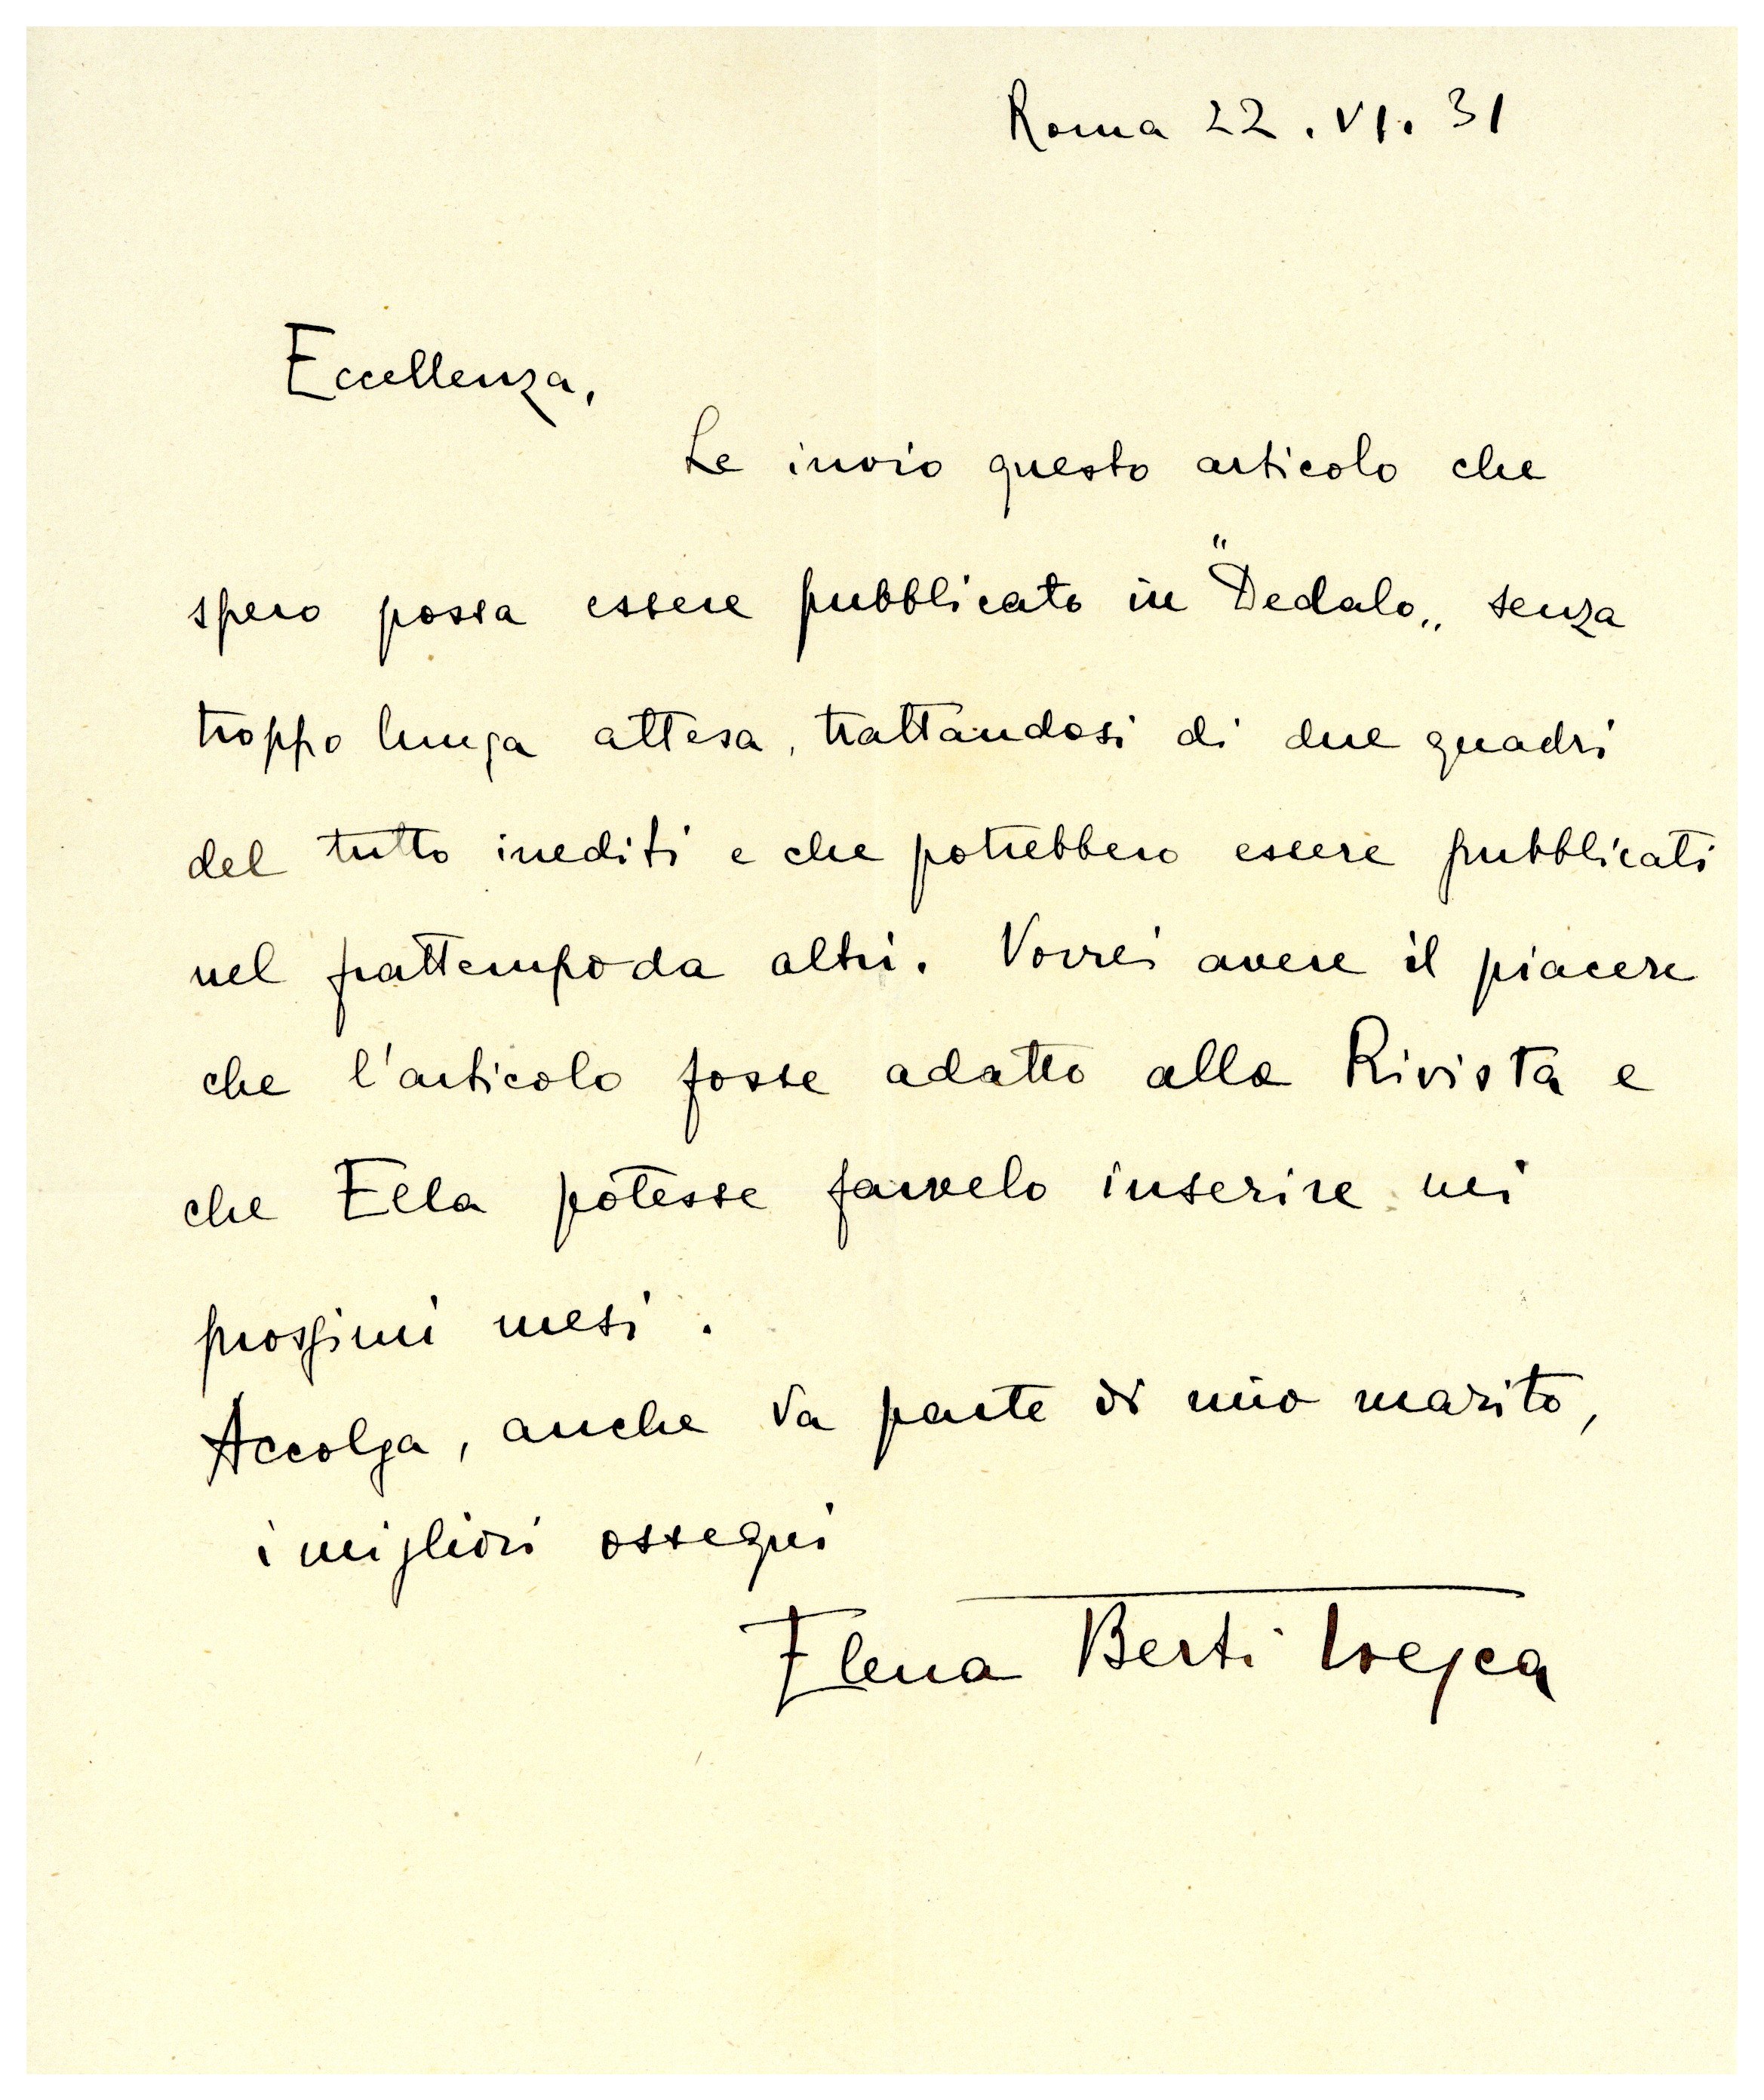 Roma 22. VI. 31
Eccellenza,
Le invio questo articolo che
spero possa essere pubblicato in "Dedalo„ senza
troppo lunga attesa, trattandosi di due quadri
del tutto inediti e che potrebbero essere pubblicati
nel frattempo da altri. Vorrei avere il piacere
che l'articolo fosse adatto alla Rivista e
che Ella potesse farvelo inserire nei
prossimi mesi.
Accolga, anche da parte di mio marito,
i migliori ossequi
Elena Berti Toesca